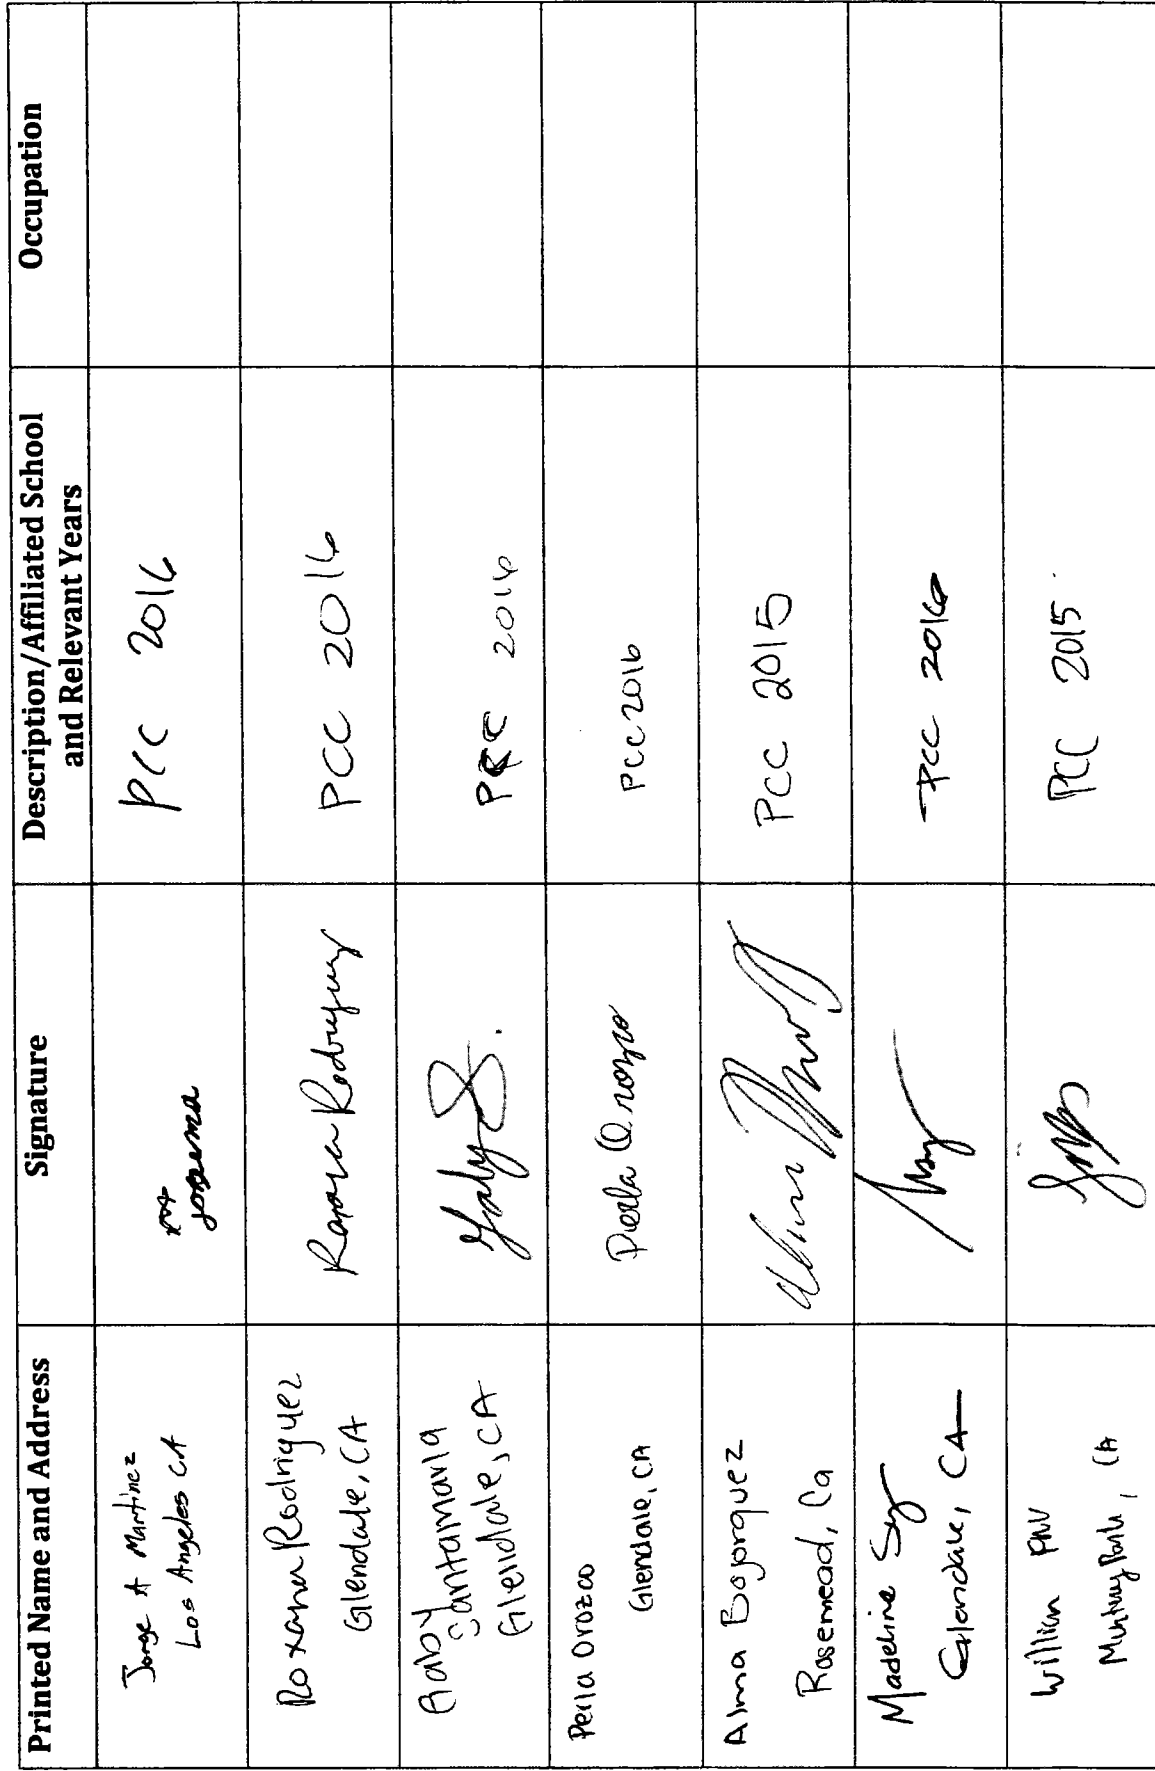 Printed Name and Address
Signature
Description/Affiliated School
and Relevant Years
Occupation
Jorge A Martinez
Los Angeles CA
PCC 2016
Roxana Rodriguez
Glendale, CA
Roxana Rodriguez
PCC 2016
Gaby
Santamaria
Glendale, CA
Gaby S.
PCC 2016
Perla Orozco
Glendale, CA
Perla Orozco
PCC 2016
Alma Bojorquez
Rosemead, Ca
Alma
PCC 2015
Madeline Sy
Glendale, CA
PCC 2016
William
Monterey Park, CA
PCC 2015